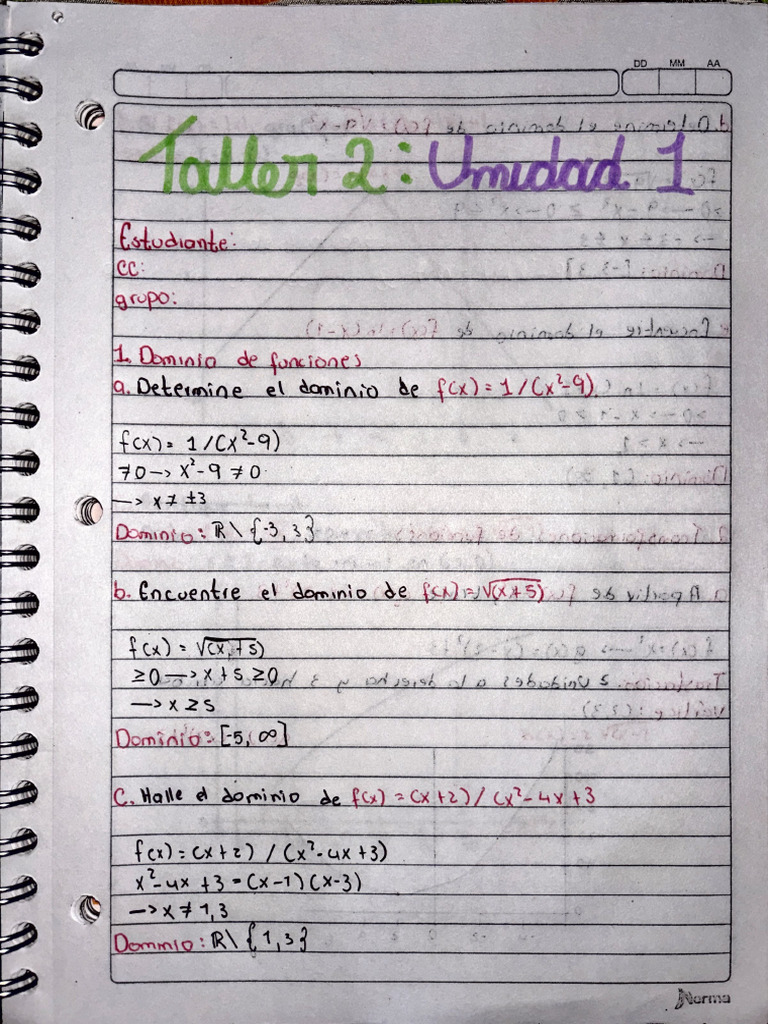 DD MM AA
Taller 2: Unidad 1
Estudiante:
CC:
grupo:
1. Dominio de funciones
a. Determine el dominio de f(x) = 1/(x²-9)
f(x) = 1/(x²-9)
≠0 → x²-9 ≠ 0
→ x ≠ ±3
Dominio: ℝ \ {-3, 3}
b. Encuentre el dominio de f(x) = √(x+5)
f(x) = √(x+5)
≥0 → x+5 ≥0
→ x ≥ 5
Dominio: [-5, ∞]
C. Halle el dominio de f(x) = (x+2) / (x²-4x+3
f(x) = (x+2) / (x²-4x+3)
x²-4x+3 = (x-1)(x-3)
→ x ≠ 1,3
Dominio: ℝ \ {1, 3}
Norma